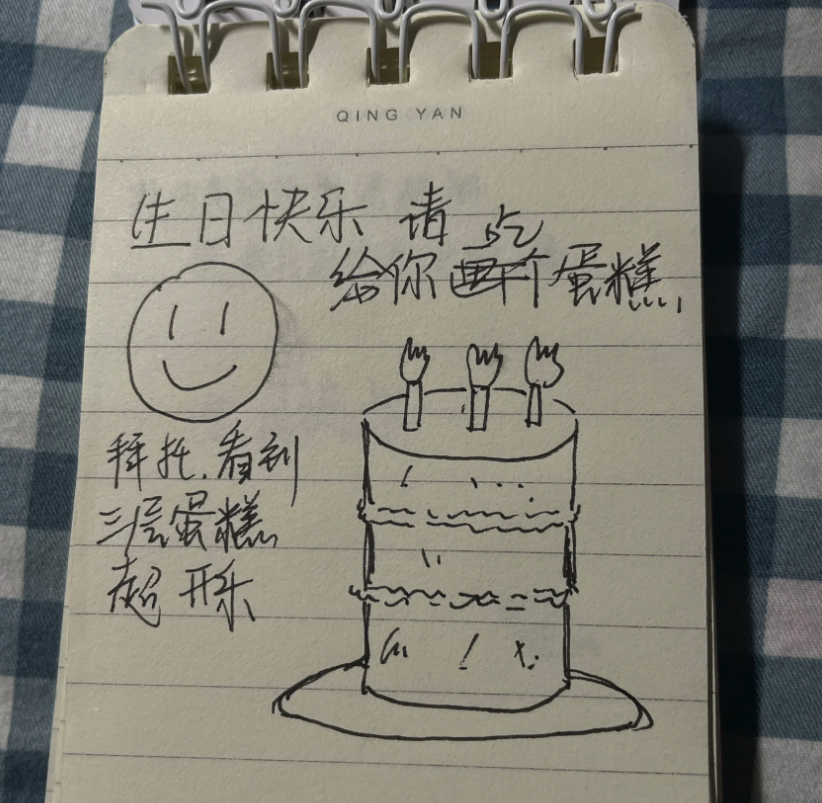 QING YAN
生日快乐 请吃
给你画个蛋糕
拜托.看到
三层蛋糕
超开乐